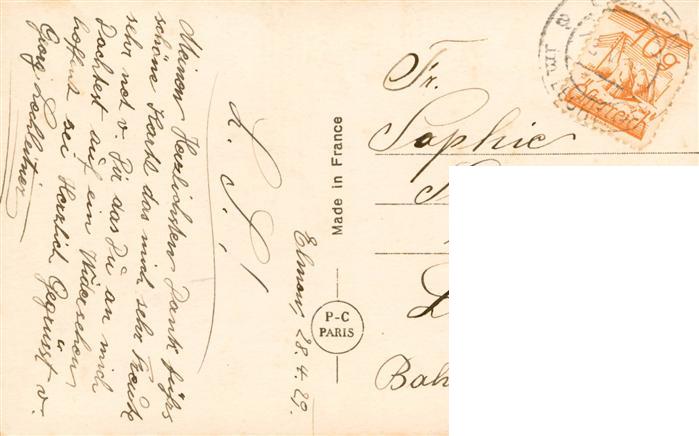 Elmau, 28.4.29.
L. S.!
Meinen Herzlichsten Dank fürs
schöne Karte das mich sehr freute
sehr net v. Dir das Du an mich
Dachtest auf ein Widersehen
hoffent sei Herzlich Gegrüsst v.
Georg
Made in France
P-C
PARIS
Fr.
Sophie
Bah
10g
Österreich